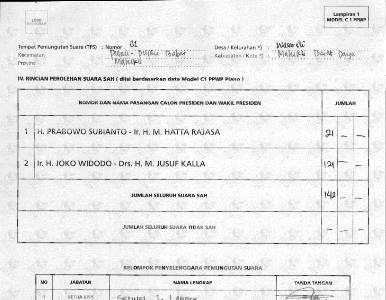 Lampiran 1
MODEL C 1 PPWP
Tempat Pemungutan Suara (TPS) : Nomor 01
Desa / Kelurahan *) :
Kecamatan : Pulau - Pulau Babar
Kabupaten / Kota *) : Maluku Barat Daya
Provinsi : Maluku
IV. RINCIAN PEROLEHAN SUARA SAH ( diisi berdasarkan data Model C1 PPWP Plano )
NOMOR DAN NAMA PASANGAN CALON PRESIDEN DAN WAKIL PRESIDEN JUMLAH
1 H. PRABOWO SUBIANTO - Ir. H. M. HATTA RAJASA 21 – –
2 Ir. H. JOKO WIDODO - Drs. H. M. JUSUF KALLA 121 – –
JUMLAH SELURUH SUARA SAH 142 – –
JUMLAH SELURUH SUARA TIDAK SAH – – –
KELOMPOK PENYELENGGARA PEMUNGUTAN SUARA
NO JABATAN NAMA LENGKAP TANDA TANGAN
KETUA KPPS